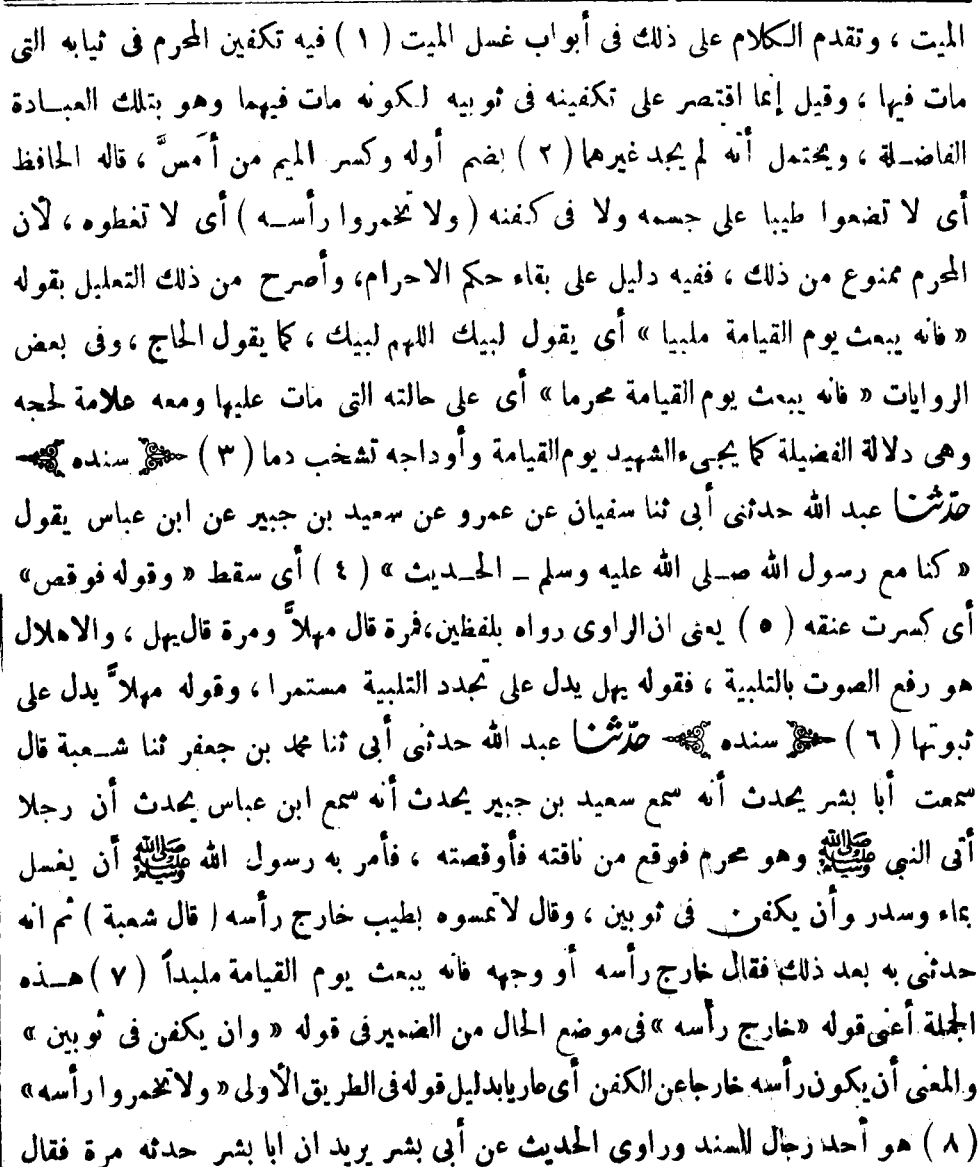 الميت ، وتقدم الكلام على ذلك فى أبواب غسل الميت ( ١ ) فيه تكفين المحرم فى ثيابه التى
مات فيها ، وقيل إنما اقتصر على تكفينه فى ثوبيه لكونه مات فيهما وهو بتلك العبادة
الفاضلة ، ويحتمل أنه لم يجد غيرهما ( ٢ ) بضم أوله وكسر الميم من أمسَّ ، قاله الحافظ
أى لا تضعوا طيبا على جسمه ولا فى كفنه ( ولا تخمروا رأسه ) أى لا تغطوه ، لأن
المحرم ممنوع من ذلك ، ففيه دليل على بقاء حكم الاحرام، وأصرح من ذلك التعليل بقوله
« فانه يبعث يوم القيامة ملبيا » أى يقول لبيك اللهم لبيك ، كما يقول الحاج ، وفى بعض
الروايات « فانه يبعث يوم القيامة محرما » أى على حالته التى مات عليها ومعه علامة لحجه
وهى دلالة الفضيلة كما يجىء الشهيد يوم القيامة وأوداجه تشخب دما ( ٣ ) سنده
حدّثنا عبد الله حدثنى أبى ثنا سفيان عن عمرو عن سعيد بن جبير عن ابن عباس يقول
« كنا مع رسول الله صلى الله عليه وسلم ـ الحديث » ( ٤ ) أى سقط « وقوله فوقص»
أى كسرت عنقه ( ٥ ) يعنى ان الراوى رواه بلفظين،فمرة قال مهلاًّ ومرة قال يهل ، والاهلال
هو رفع الصوت بالتلبية ، فقوله يهل يدل على تجدد التلبية مستمرا ، وقوله مهلاًّ يدل على
ثبوتها ( ٦ ) سنده حدّثنا عبد الله حدثنى أبى ثنا محمد بن جعفر ثنا شعبة قال
سمعت أبا بشر يحدث أنه سمع سعيد بن جبير يحدث أنه سمع ابن عباس يحدث أن رجلا
أتى النبى ﷺ وهو محرم فوقع من ناقته فأوقصته ، فأمر به رسول الله ﷺ أن يغسل
بماء وسدر وأن يكفن فى ثوبين ، وقال لاتمسوه بطيب خارج رأسه ( قال شعبة ) ثم انه
حدثنى به بعد ذلك فقال خارج رأسه أو وجهه فانه يبعث يوم القيامة ملبداً ( ٧ ) هذه
الجملة أعنى قوله «خارج رأسه » فى موضع الحال من الضمير فى قوله « وان يكفن فى ثوبين »
والمعنى أن يكون رأسه خارجا عن الكفن أى عاريا بدليل قوله فى الطريق الأولى « ولا تخمروا رأسه»
( ٨ ) هو أحد رجال السند وراوى الحديث عن أبى بشر يريد ان ابا بشر حدثه مرة فقال